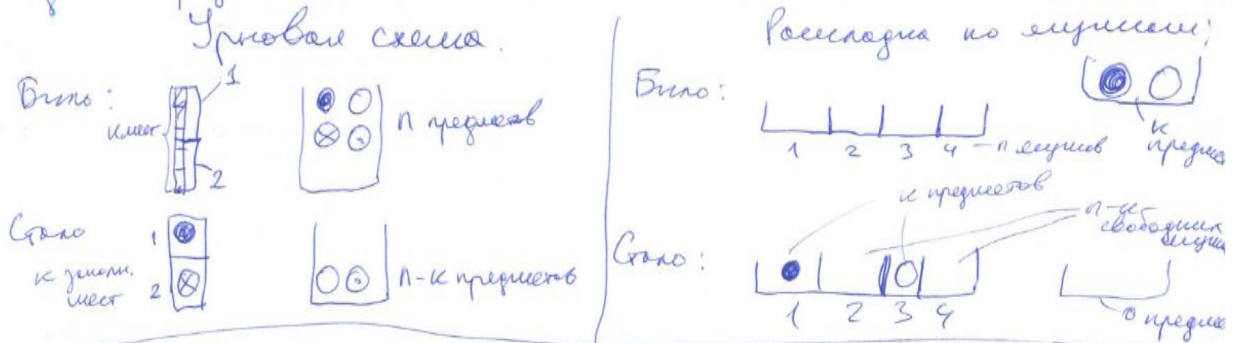 Урновая схема.
Было:
1
к мест
2
n предметов
Стало
к заполн.
мест
1
2
n-к предметов
Раскладка по ящикам:
Было:
1 2 3 4 - n ящиков
к
предме
к предметов
n-к
свободных
ящик
Стало:
1 2 3 4
0 предме